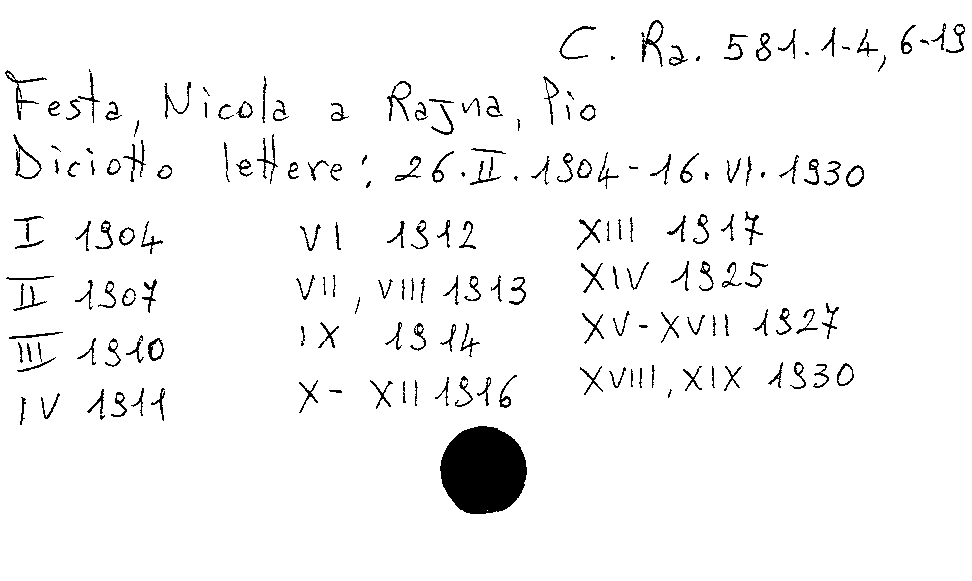 C. Ra. 581. 1-4, 6-19
Festa, Nicola a Rajna, Pio
Diciotto lettere: 26.II.1904-16.VI.1930
I 1904
II 1907
III 1910
IV 1911
VI 1912
VII, VIII 1913
IX 1914
X- XII 1916
XIII 1917
XIV 1925
XV-XVII 1927
XVIII, XIX 1930